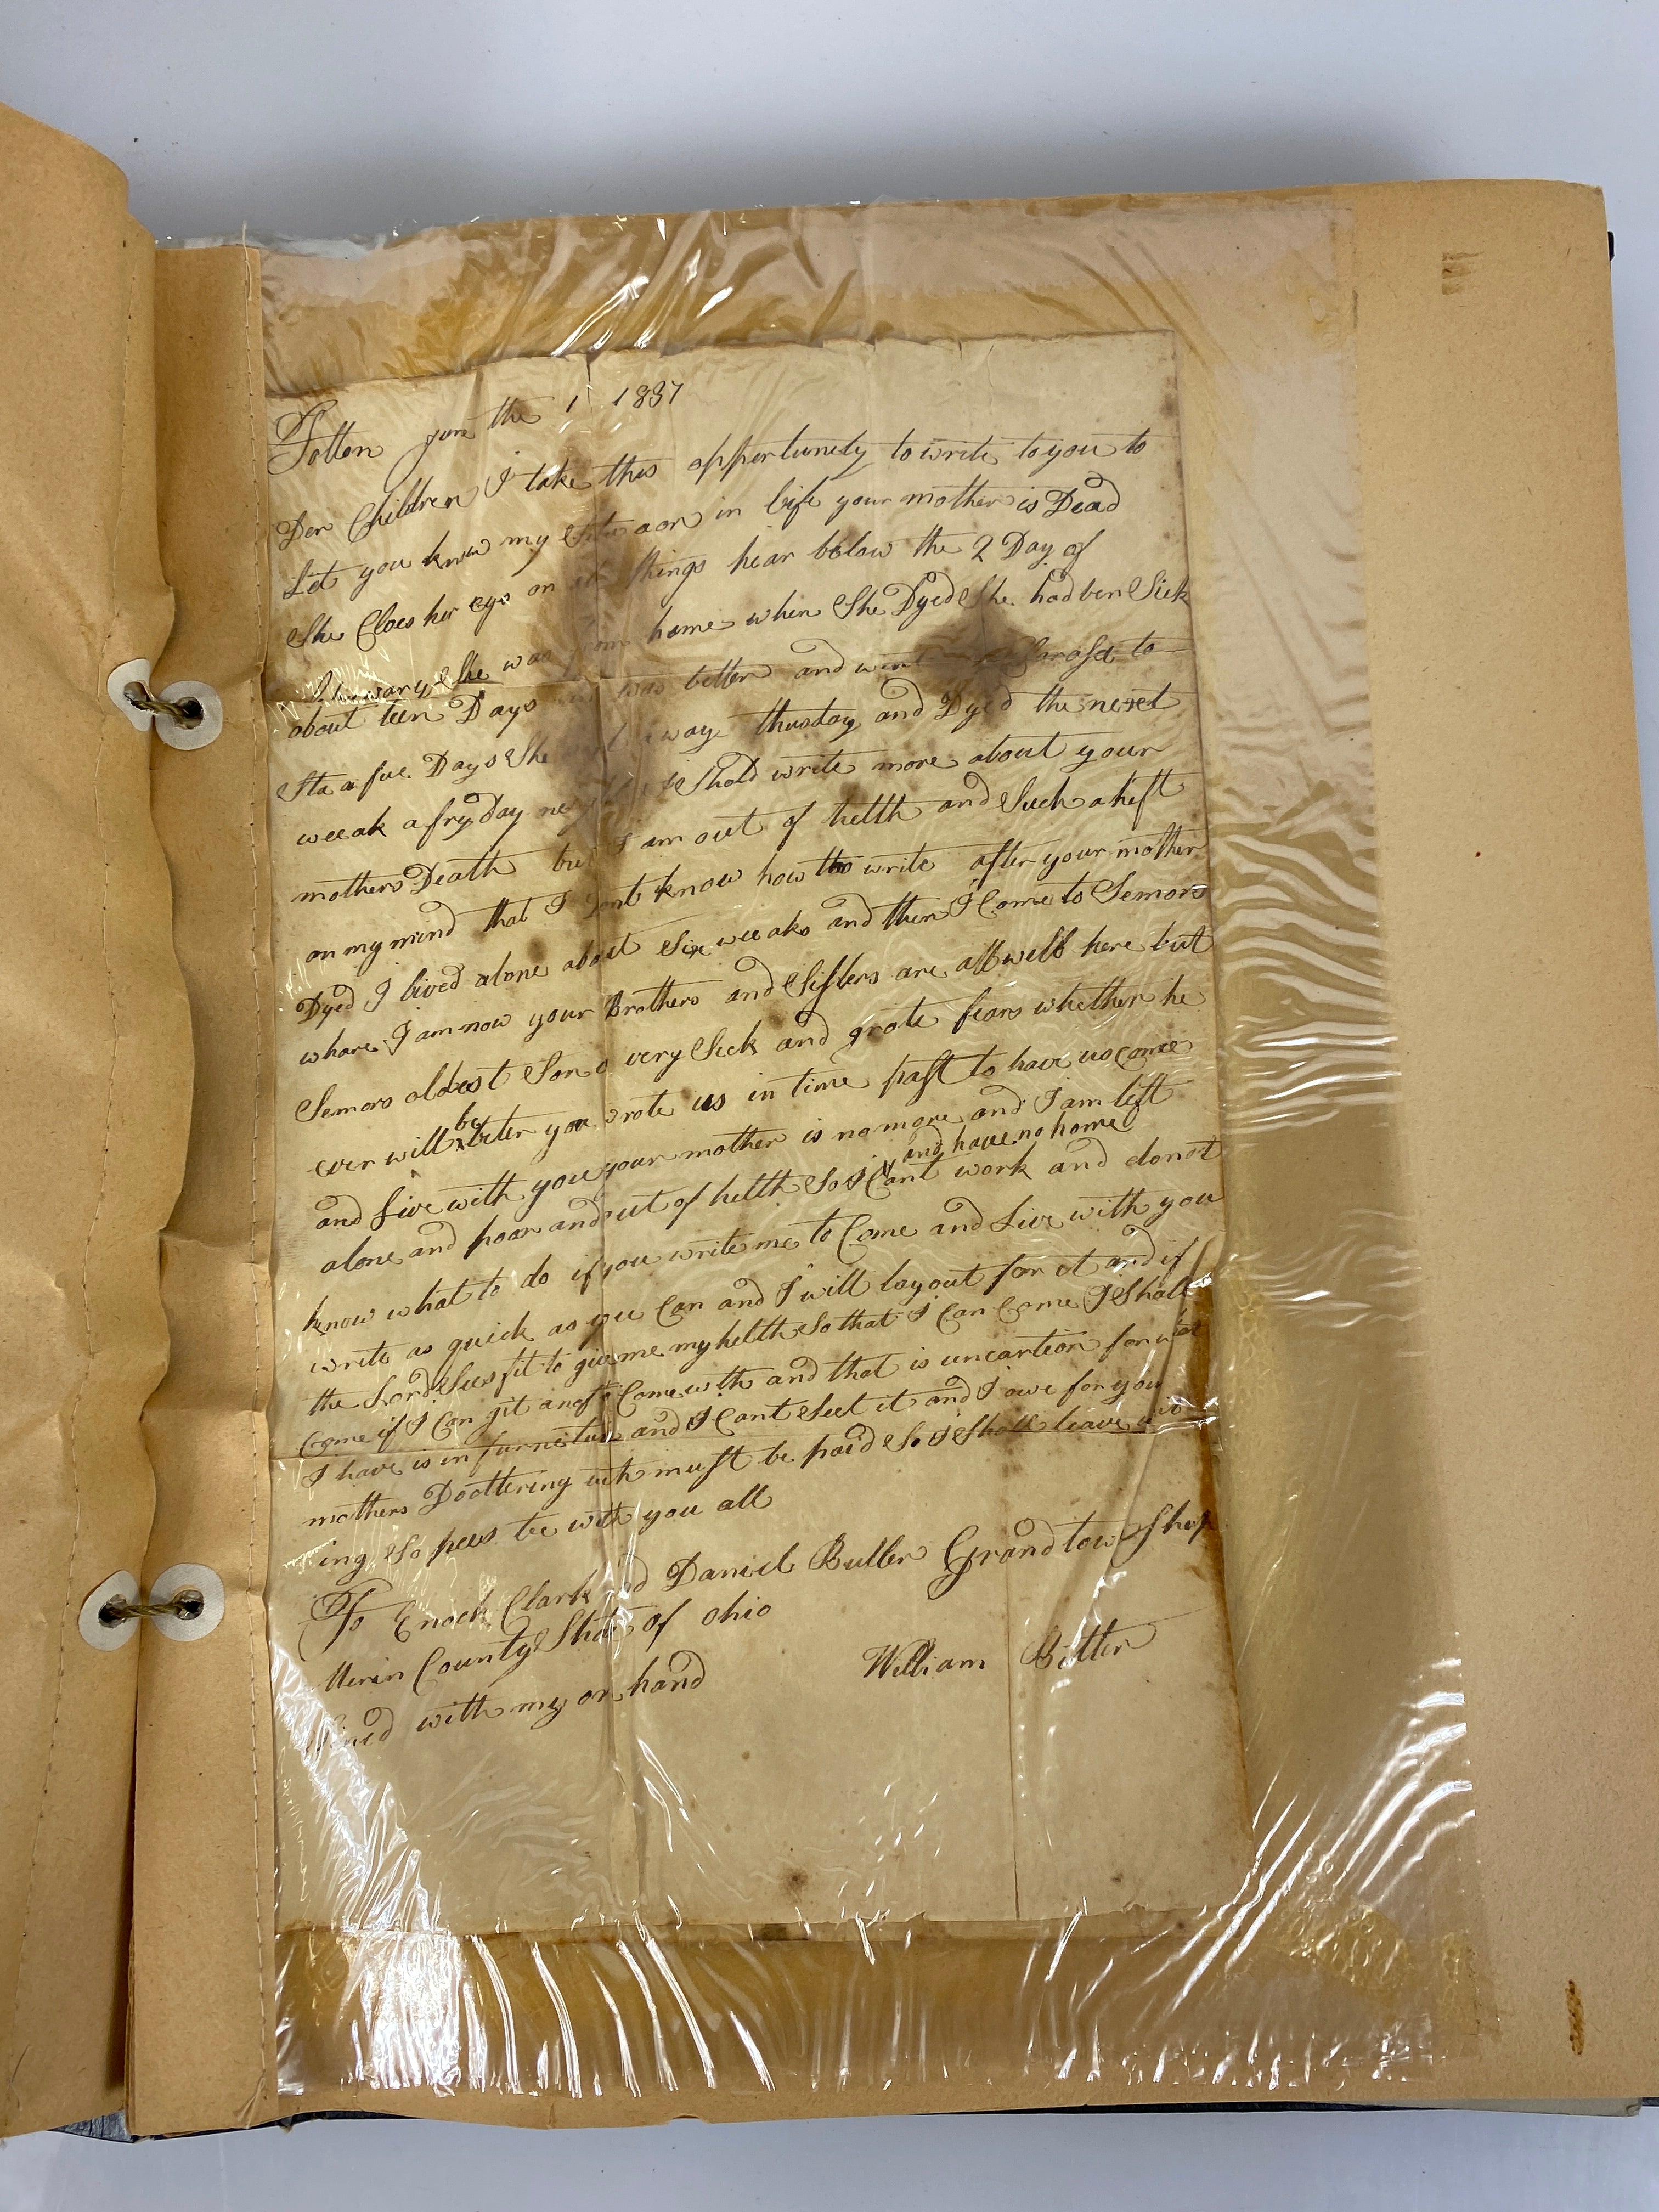 Folton June the 1 1837
Der Children I take this opportunety to write to you to
Let you know my in life your mother is Dead
She Cloes her eys on things hear below the 2 Day of
She was from home when She Dyed She had ben Sick
about teen Days was better and went to
Sta a fue Days She away thusday and Dyed the next
weeak a fryday Shold write more about your
mothers Death but I am out of helth and Such a heft
on my mind that I Dont know how to write after your mother
Dyed I lived alone about Six weeaks and then I Come to Semors
whare I am now your Brothers and Sisters are all well here but
Semors oldest Son very Sick and grate fears whether he
ever will be beter you wrote us in time past to have us come
and Live with you your mother is no more and I am left
alone and poor and out of helth So I Cant work and have no home and do not
know what to do if you write me to Come and Live with you
write as quick as you Can and I will lay out for it and if
the Lord Sees fit to give me my helth So that I Can Come I Shall
Come if I Can git to Come with and that is uncartion for
I have is in furneture and I Cant Seel it and I owe for you
mothers Docttering must be paid So I Shall leave
ing So pees be with you all
To Enoch Clark and Daniel Butler Grand township
County State of Ohio
with my on hand William